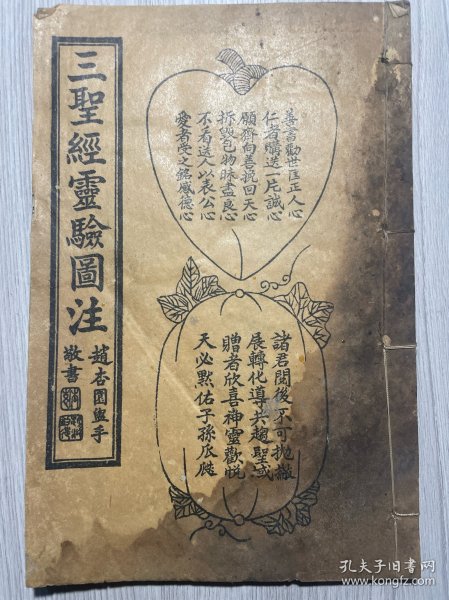 三聖經靈驗圖注
趙杏園盥手
敬書
善書勸世匡正人心
仁者購送一片誠心
願齊向善挽回天心
拆毀包物昧盡良心
不看送人以表公心
愛者受之銘感德心
諸君閱後不可拋撒
展轉化導共趨聖域
贈者欣喜神靈歡悅
天必默佑子孫瓜瓞
孔夫子旧书网
www.kongfz.com